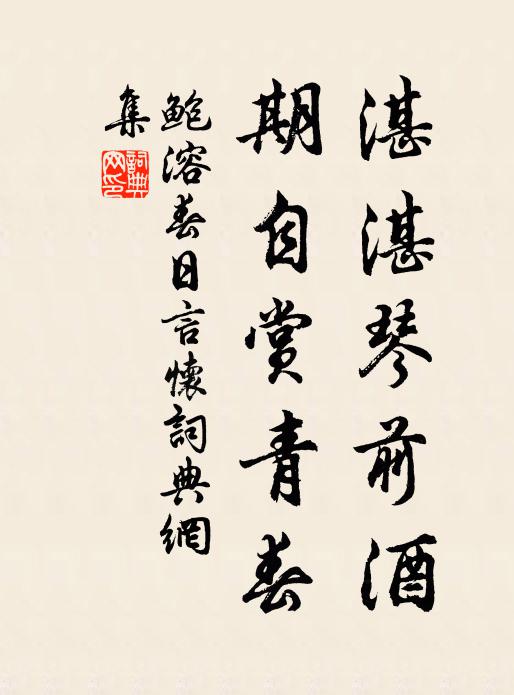 湛湛琴前酒
期自賞青春
鮑溶春日言懷詞典網
集
詞典
网印